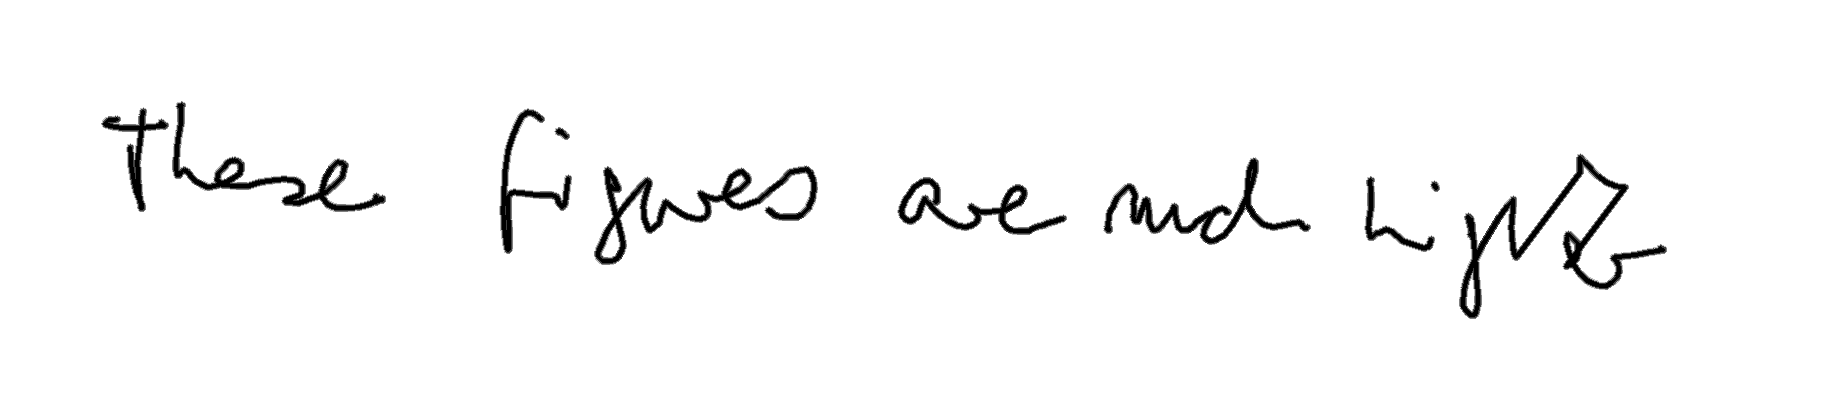 These figures are much higher